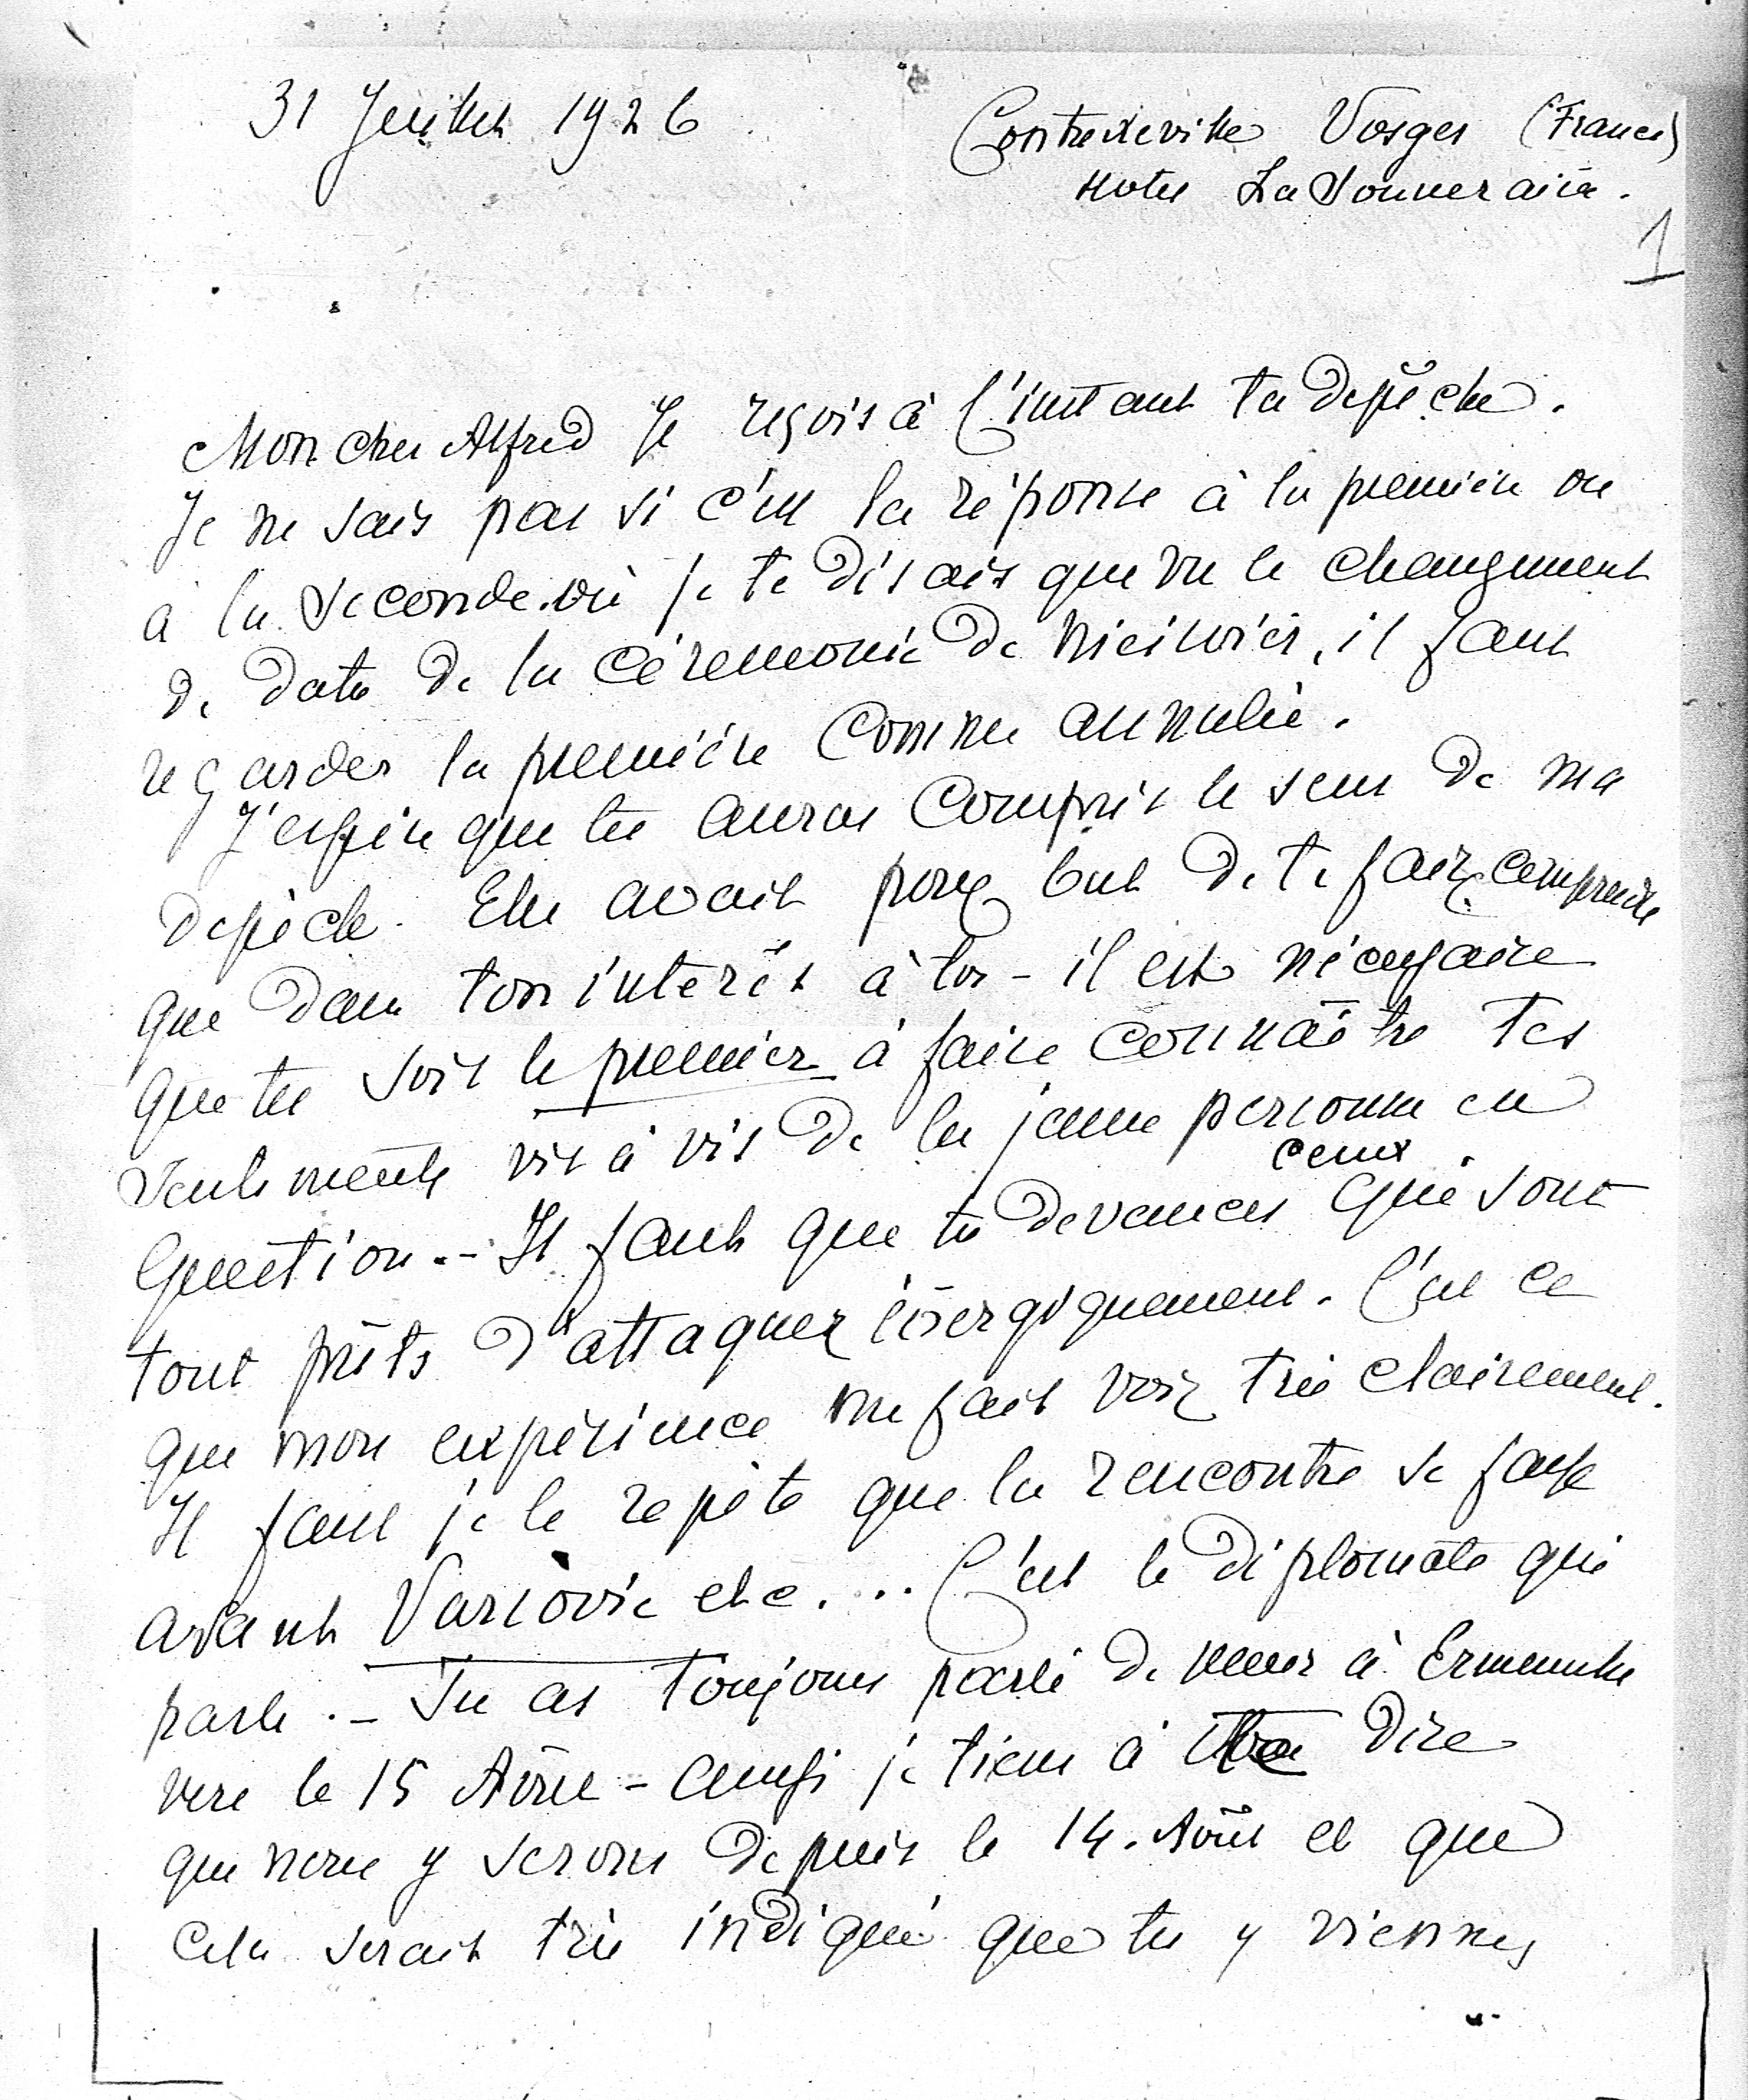 31 Juillet 1926
Contrexeville Vosges (France)
Hotel La Souveraine.
1
Mon cher Alfred Je reçois à l'instant ta depêche.
Je ne sais pas si c'est la réponse à la première ou
à la seconde où je te disais que vu le changement
de date de la cérémonie de Nieśwież, il faut
regarder la première comme annulée.
J'espère que tu auras compris le sens de ma
depêche. Elle avait pour but de te faire comprendre
que dans ton intérêt à toi - il est nécessaire
que tu sois le premier à faire connaître tes
sentiments vis à vis de la jeune personne en
question. - Il faut que tu devances ceux qui sont
tout prêts d'attaquer énergiquement. C'est ce
que mon expérience me fait voir très clairement.
Il faut je le repète que la rencontre se fasse
avant Varsovie etc... C'est le diplomate qui
parle. - Tu as toujours parlé de venir à
vers le 15 Août - aussi je tiens à te dire
que nous y serons depuis le 14. Août et que
cela serait très indiqué que tu y viennes